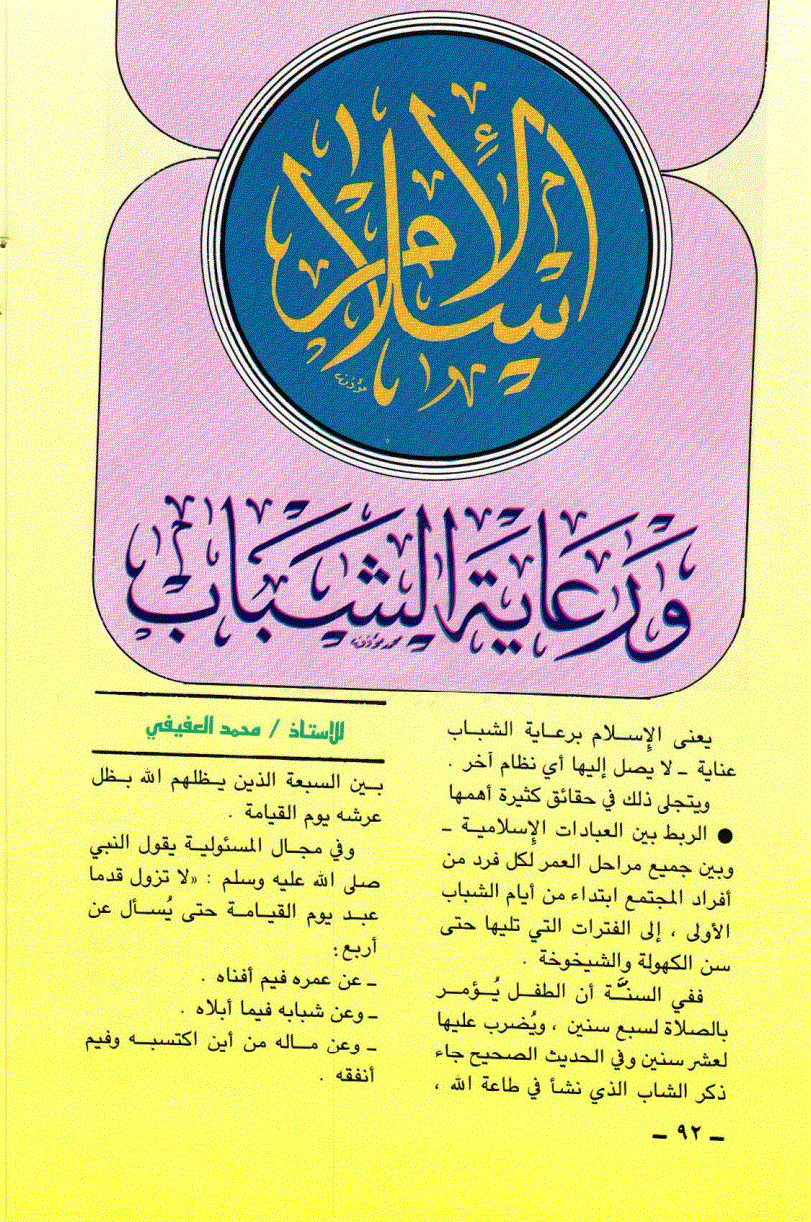 الإسلام
مؤذنه
ورعاية الشباب
محمد مؤذنه
للاستاذ / محمد العفيفي
يعنى الإسلام برعاية الشباب
عناية ـ لا يصل إليها أي نظام آخر .
ويتجلى ذلك في حقائق كثيرة أهمها
● الربط بين العبادات الإسلامية ـ
وبين جميع مراحل العمر لكل فرد من
أفراد المجتمع ابتداء من أيام الشباب
الأولى ، إلى الفترات التي تليها حتى
سن الكهولة والشيخوخة .
ففي السنَّة أن الطفل يُؤمر
بالصلاة لسبع سنين ، ويُضرب عليها
لعشر سنين وفي الحديث الصحيح جاء
ذكر الشاب الذي نشأ في طاعة الله ،
بين السبعة الذين يظلهم الله بظل
عرشه يوم القيامة .
وفي مجال المسئولية يقول النبي
صلى الله عليه وسلم : «لا تزول قدما
عبد يوم القيامة حتى يُسأل عن
أربع:
ـ عن عمره فيم أفناه .
ـ وعن شبابه فيما أبلاه .
ـ وعن ماله من أين اكتسبه وفيم
أنفقه .
ـ ٩٢ ـ